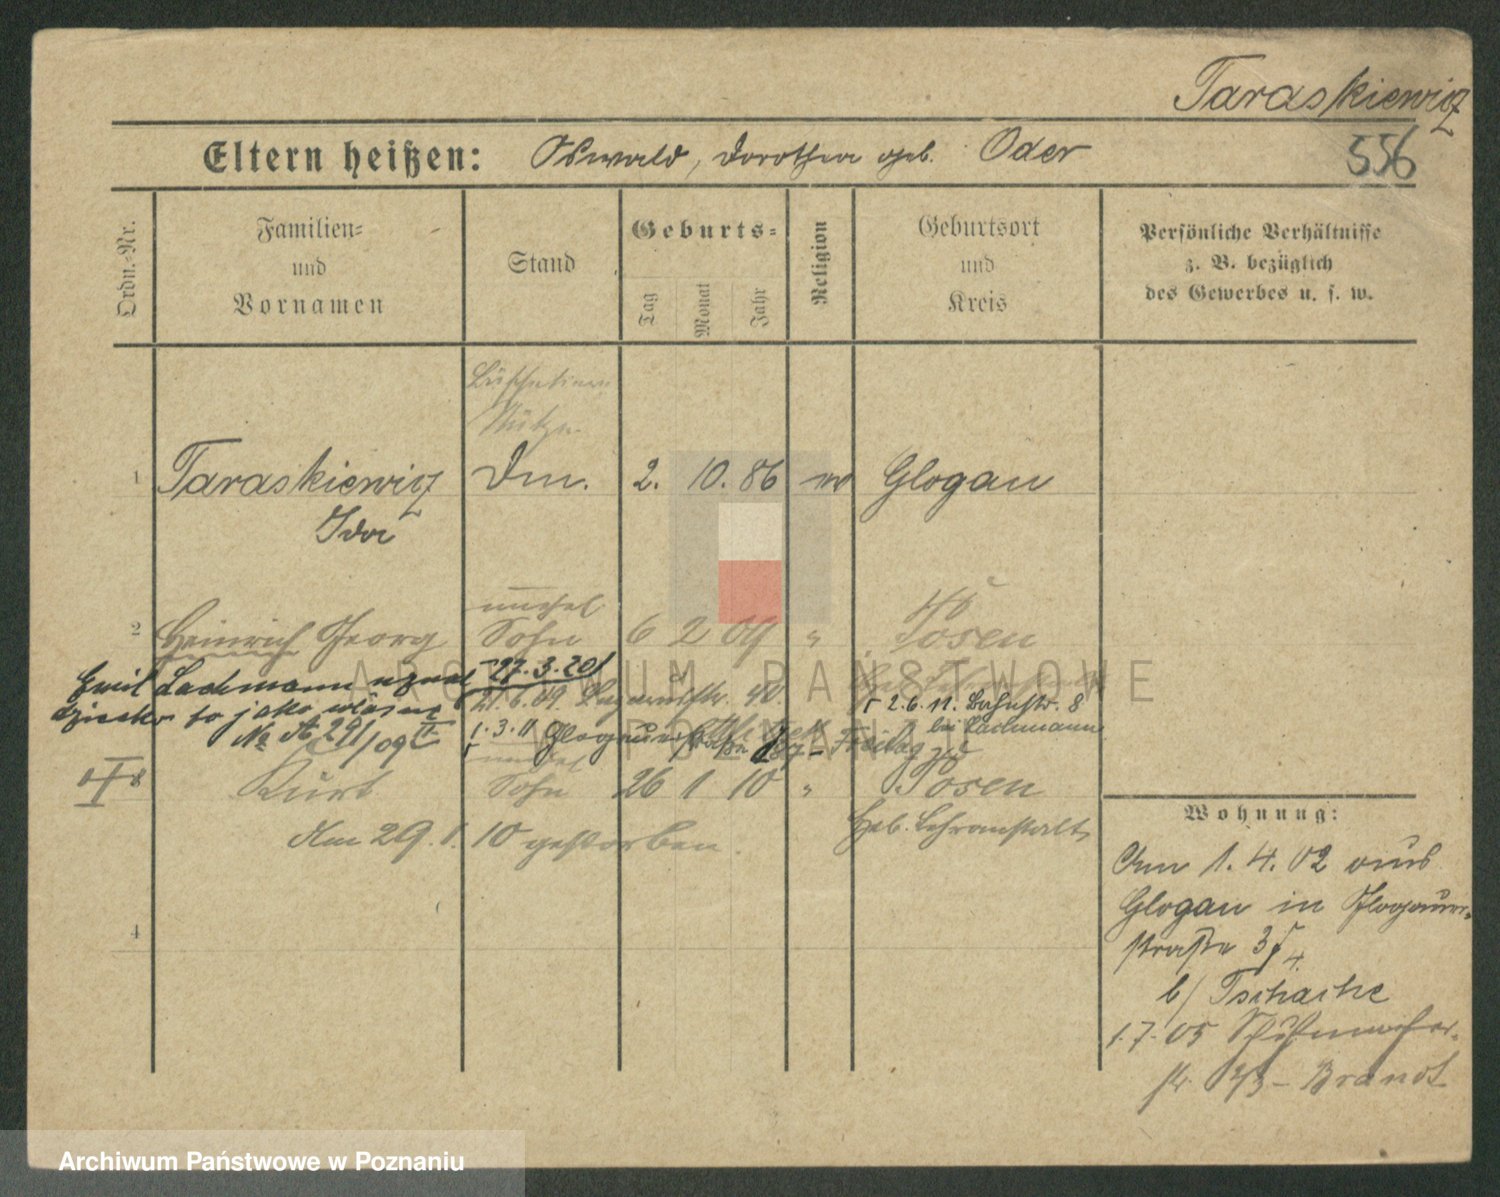 Taraskiewicz
Eltern heißen: Oswald, Dorothea geb. Oder
556
Ordn.-Nr.
Familien-
und
Vornamen
Stand
Geburts-
Tag
Monat
Jahr
Religion
Geburtsort
und
Kreis
Persönliche Verhältnisse
z. B. bezüglich
des Gewerbes u. s. w.
1 Taraskiewicz 2. 10. 86 Glogau
Ida
unehel
2 Heinrich Georg Sohn 6 2 09 " Posen
Emil Lachmann uznał 27.3.20
dziecko to jako własne 21.6.09. 40. 2.6.11. Bahnstr. 8
№ A 291/09 II 1.3.11 Glogauerstraße Freitag bei Lachmann
unehel
Kurt Sohn 26 1 10 " Posen
Am 29.1.10 gestorben. Heb. Lehranstalt
4
Wohnung:
Am 1.4.02 aus
Glogau in Glogauer-
straße
b/ Tschache
1.7.05
str. Brandt
ARCHIWUM PAŃSTWOWE
W POZNANIU
Archiwum Państwowe w Poznaniu